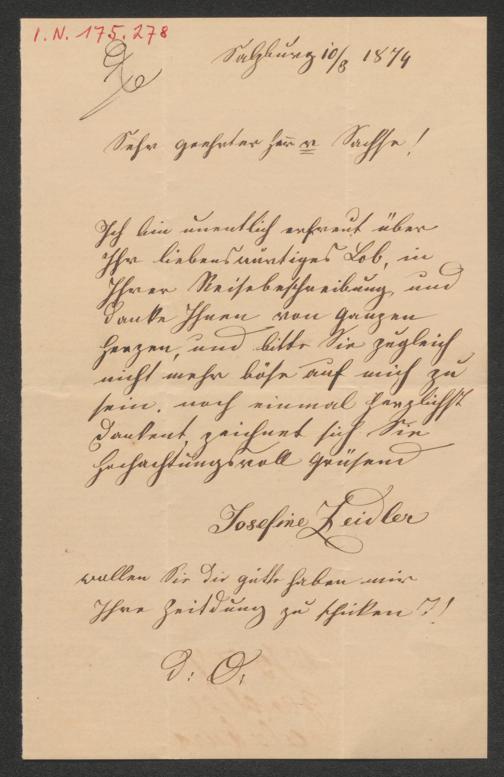 I.N. 175.278
Salzburg 10/8 1874
Sehr geehrter Herr v Sachse!
Ich bin unentlich erfreut über
Ihr liebenswürtiges Lob, in
Ihrer Reisebeschreibung und
danke Ihnen von ganzen
Herzen, und bitte Sie zugleich
nicht mehr böse auf mich zu
sein. noch einmal herzlichst
dankent, zeichnet sich Sie
hochachtungsvoll grüsend
Josefine Zeidler
wollen Sie die gütte haben mir
Ihre Zeitdung zu schicken?!
d: O.